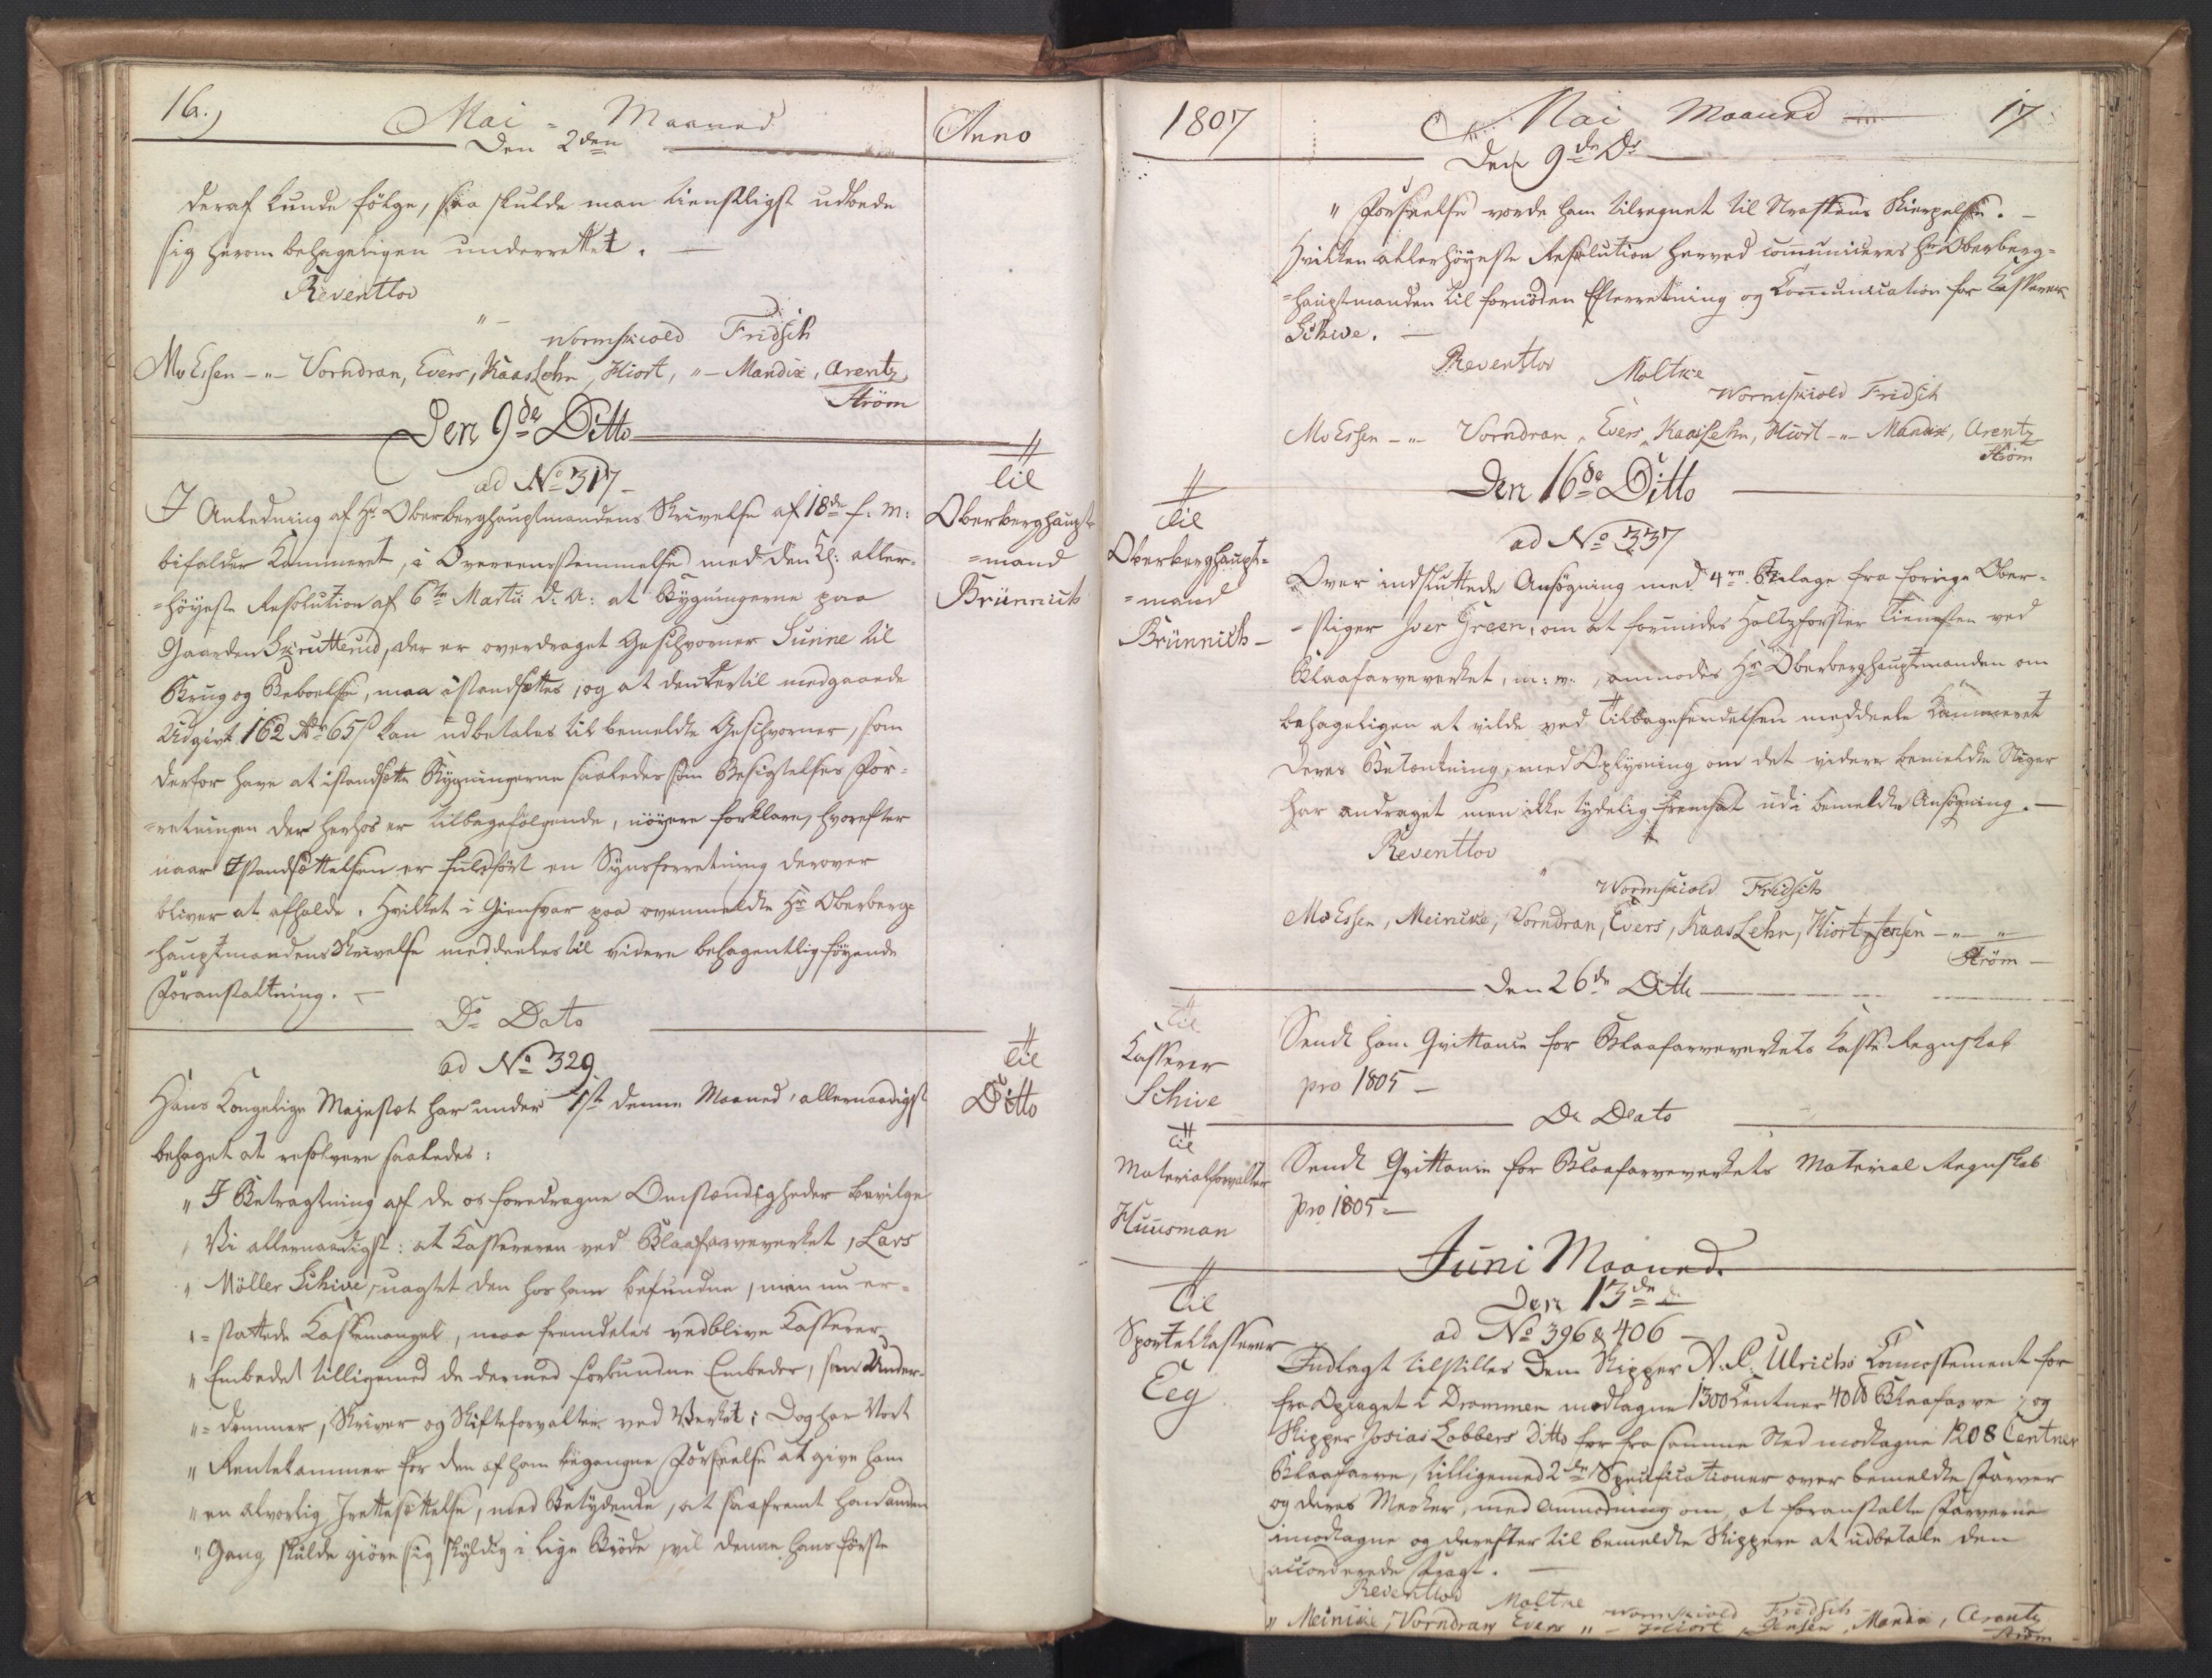 16.)
Mai - Maaned
Anno
Den 2den
deraf kunde følge, saa skulde man tienstligst udbede
sig herom behageligen underrettet. —
Reventlov
" -
Wormskiold Fridsch
MvEssen - " - Vorndran, Evers, KaasLehn, Hiort, " - Mandix, Arentz
Strøm
Den 9de Ditto
ad No 317 -
til
Oberberghaupt-
=mand
Brünnich
I Anledning af Hr Oberberghauptmandens Skrivelse af 18de f: M:
bifalder Kammeret, i Overeensstemmelse med den Kl: aller-
=høyeste Resolution af 6te Martii d: A: at Bygningerne paa
Gaarden Skrutterud, der er overdraget Geschworner Sunne til
Brug og Beboelse, maa istandsættes, og at den dertil medgaaende
Udgivt 162 Rdr 65 s kan udbetales til bemeldte Geschworner, som
derfor have at istandsætte Bygningerne saaledes som Besigtelses For-
=retningen der herhos er tilbagefølgende, nöyere forklare, hvorefter
naar Istandsættelsen er fuldført en Synsforretning derover
bliver at afholde. Hvilket i Giensvar paa ovenmeldte Hr Oberberg-
hauptmandens Skrivelse meddeeles til videre behagentlig föyende
Foranstaltning. —
Do Dato
ad No 329
til
Ditto
Hans Kongelige Majestæt har under 1ste denne Maaned, allernaadigst
behaget at resolvere saaledes:
" I Betragtning af de os foredragne Omstændigheder bevilge
" Vi allernaadigst: at Kassereren ved Blaafarveverket, Lars
" Möller Schive, uagtet den hos ham befundne, men nu er-
" = stattede Kassemangel, maa fremdeles vedblive Kasserer
" Embedet tilligemed de dermed forbundne Embeder, som Under-
" = dommer, Skriver og Skifteforvalter ved Verket; Dog har Vort
" Rentekammer for den af ham begangne Forseelse at give ham
" en alvorlig Irettesættelse, med Betydende, at saafremt han anden
" Gang skulde giöre sig skyldig i lige Bröde, vil denne hans förste
1807
Mai Maaned
17
Den 9de Do
" Forseelse vorde ham tilregnet til Straffens Skierpelse. —
Hvilken allerhöyeste Resolution herved communiceres Hr Oberberg-
=hauptmanden til fornöden Efterretning og Communication for Kasserer
Schive. —
Reventlov
Moltke
Wormskiold Fridsch
MvEssen - " - Vorndran, Evers, KaasLehn, Hiort - " - Mandix, Arentz
Strøm
Den 16de Ditto
ad No 337
Til
Oberberghaupt-
=mand
Brünnich -
Over indsluttede Ansögning med 4re Bilage fra forrige Ober-
=stiger Iver Green, om at formedes Holtzforster Tienesten ved
Blaafarveverket, m: v:, anmodes Hr Oberberghauptmanden om
behageligen at vilde ved Tilbagesendelsen meddeele Kammeret
Deres Betænkning, med Oplysning om det videre bemeldte Stiger
har andraget men ikke tydelig fremsat udi bemeldte Ansögning. —
Reventlov
"
Wormskiold Fridsch
MvEssen, Meincke, Vorndran, Evers, KaasLehn, Hiort, Jensen - " - "
Strøm —
Den 26de Ditto
Til
Kasserer
Schive
Sendt ham Qvittance for Blaafarveverkets Kasse Regnskab
pro 1805 —
Do Dato
Til
Materialforvalter
Huusman
Sendt Qvittance for Blaafarveverkets Material Regnskab
pro 1805 —
Juni Maaned.
Den 13de
ad No 396 & 406 -
Til
Sportelkasserer
Eeg
Indlagt tilstilles Dem Skipper N. P. Ulrichs Connossement for
fra Oplaget i Drammen modtagne 1300 Centner 40 lb Blaafarve, og
Skipper Josias Lobbers ditto for fra samme Sted modtagne 1208 Centner
Blaafarve, tilligemed 2de Specificationer over bemeldte Farver
og deres Merker, med Anmodning om, at foranstalte Farverne
imodtagne og derefter til bemeldte Skippere at udbetale den
accorderede Fragt. —
Reventlov Moltke Wormskiold Fridsch
" Meincke, Vorndran, Evers " - Hiort, Jensen, Mandix, Arentz
Strøm